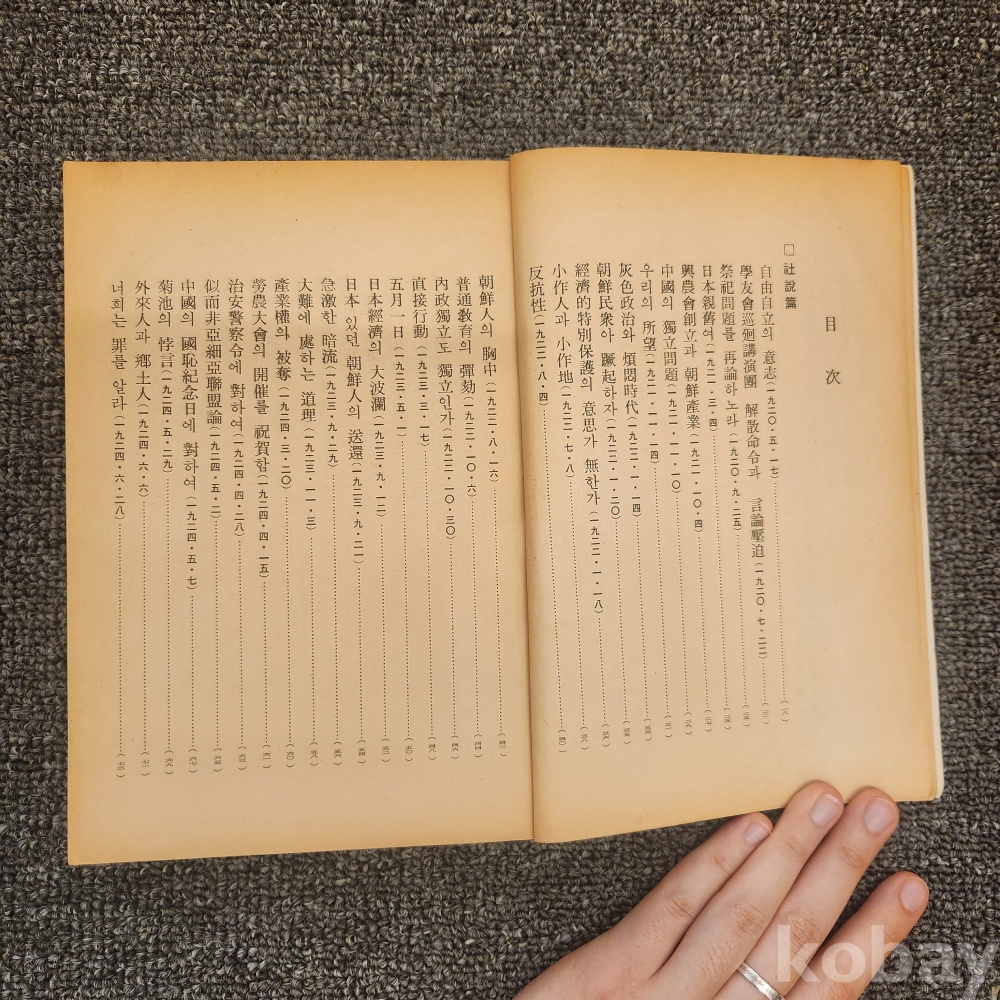 目次
□ 社說篇
自由自立의 意志(一九二〇・五・一七)
學友會巡廻講演團 解散命令과 言論壓迫(一九二〇・七・二二)
祭祀問題를 再論하노라(一九二〇・九・二五)
日本親舊여(一九二一・三・四)
興農會創立과 朝鮮產業(一九二一・一〇・四)
中國의 獨立問題(一九二一・一一・一〇)
우리의 所望(一九二一・一一・一四)
灰色政治와 煩悶時代(一九二二・一・一四)
朝鮮民衆아 蹶起하자(一九二二・一・二〇)
經濟的特別保護의 意思가 無한가(一九二二・一・一八)
小作人과 小作地(一九二二・七・八)
反抗性(一九二二・八・四)
朝鮮人의 胸中(一九二二・八・一六)
普通敎育의 彈劾(一九二二・一〇・六)
內政獨立도 獨立인가(一九二二・一〇・三〇)
直接行動(一九二三・三・一七)
五月一日(一九二三・五・一)
日本經濟의 大波瀾(一九二三・九・一二)
日本 있던 朝鮮人의 送還(一九二三・九・二一)
急激한 暗流(一九二三・九・二九)
大難에 處하는 道理(一九二三・一一・三)
產業權의 被奪(一九二四・三・二〇)
勞農大會의 開催를 祝賀함(一九二四・四・一五)
治安警察令에 對하여(一九二四・四・二八)
似而非亞細亞聯盟論(一九二四・五・二)
中國의 國恥紀念日에 對하여(一九二四・五・七)
菊池의 悖言(一九二四・五・二九)
外來人과 鄕土人(一九二四・六・六)
너희는 罪를 알라(一九二四・六・二八)
kobay